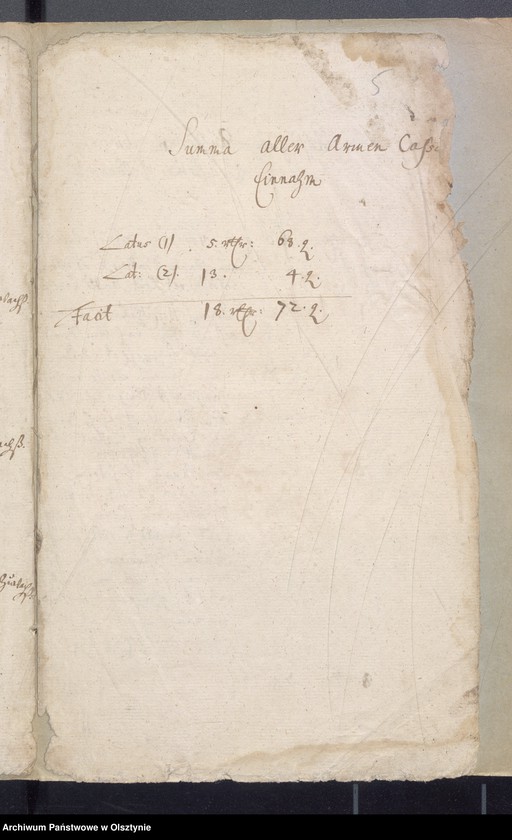 5
Summa aller Armen Cass
Einnahm
Latus (1) . 5. rthr: 68. g.
Lat: (2). 13. 4. g.
Facit 18. rthr: 72. g.
Archiwum Państwowe w Olsztynie